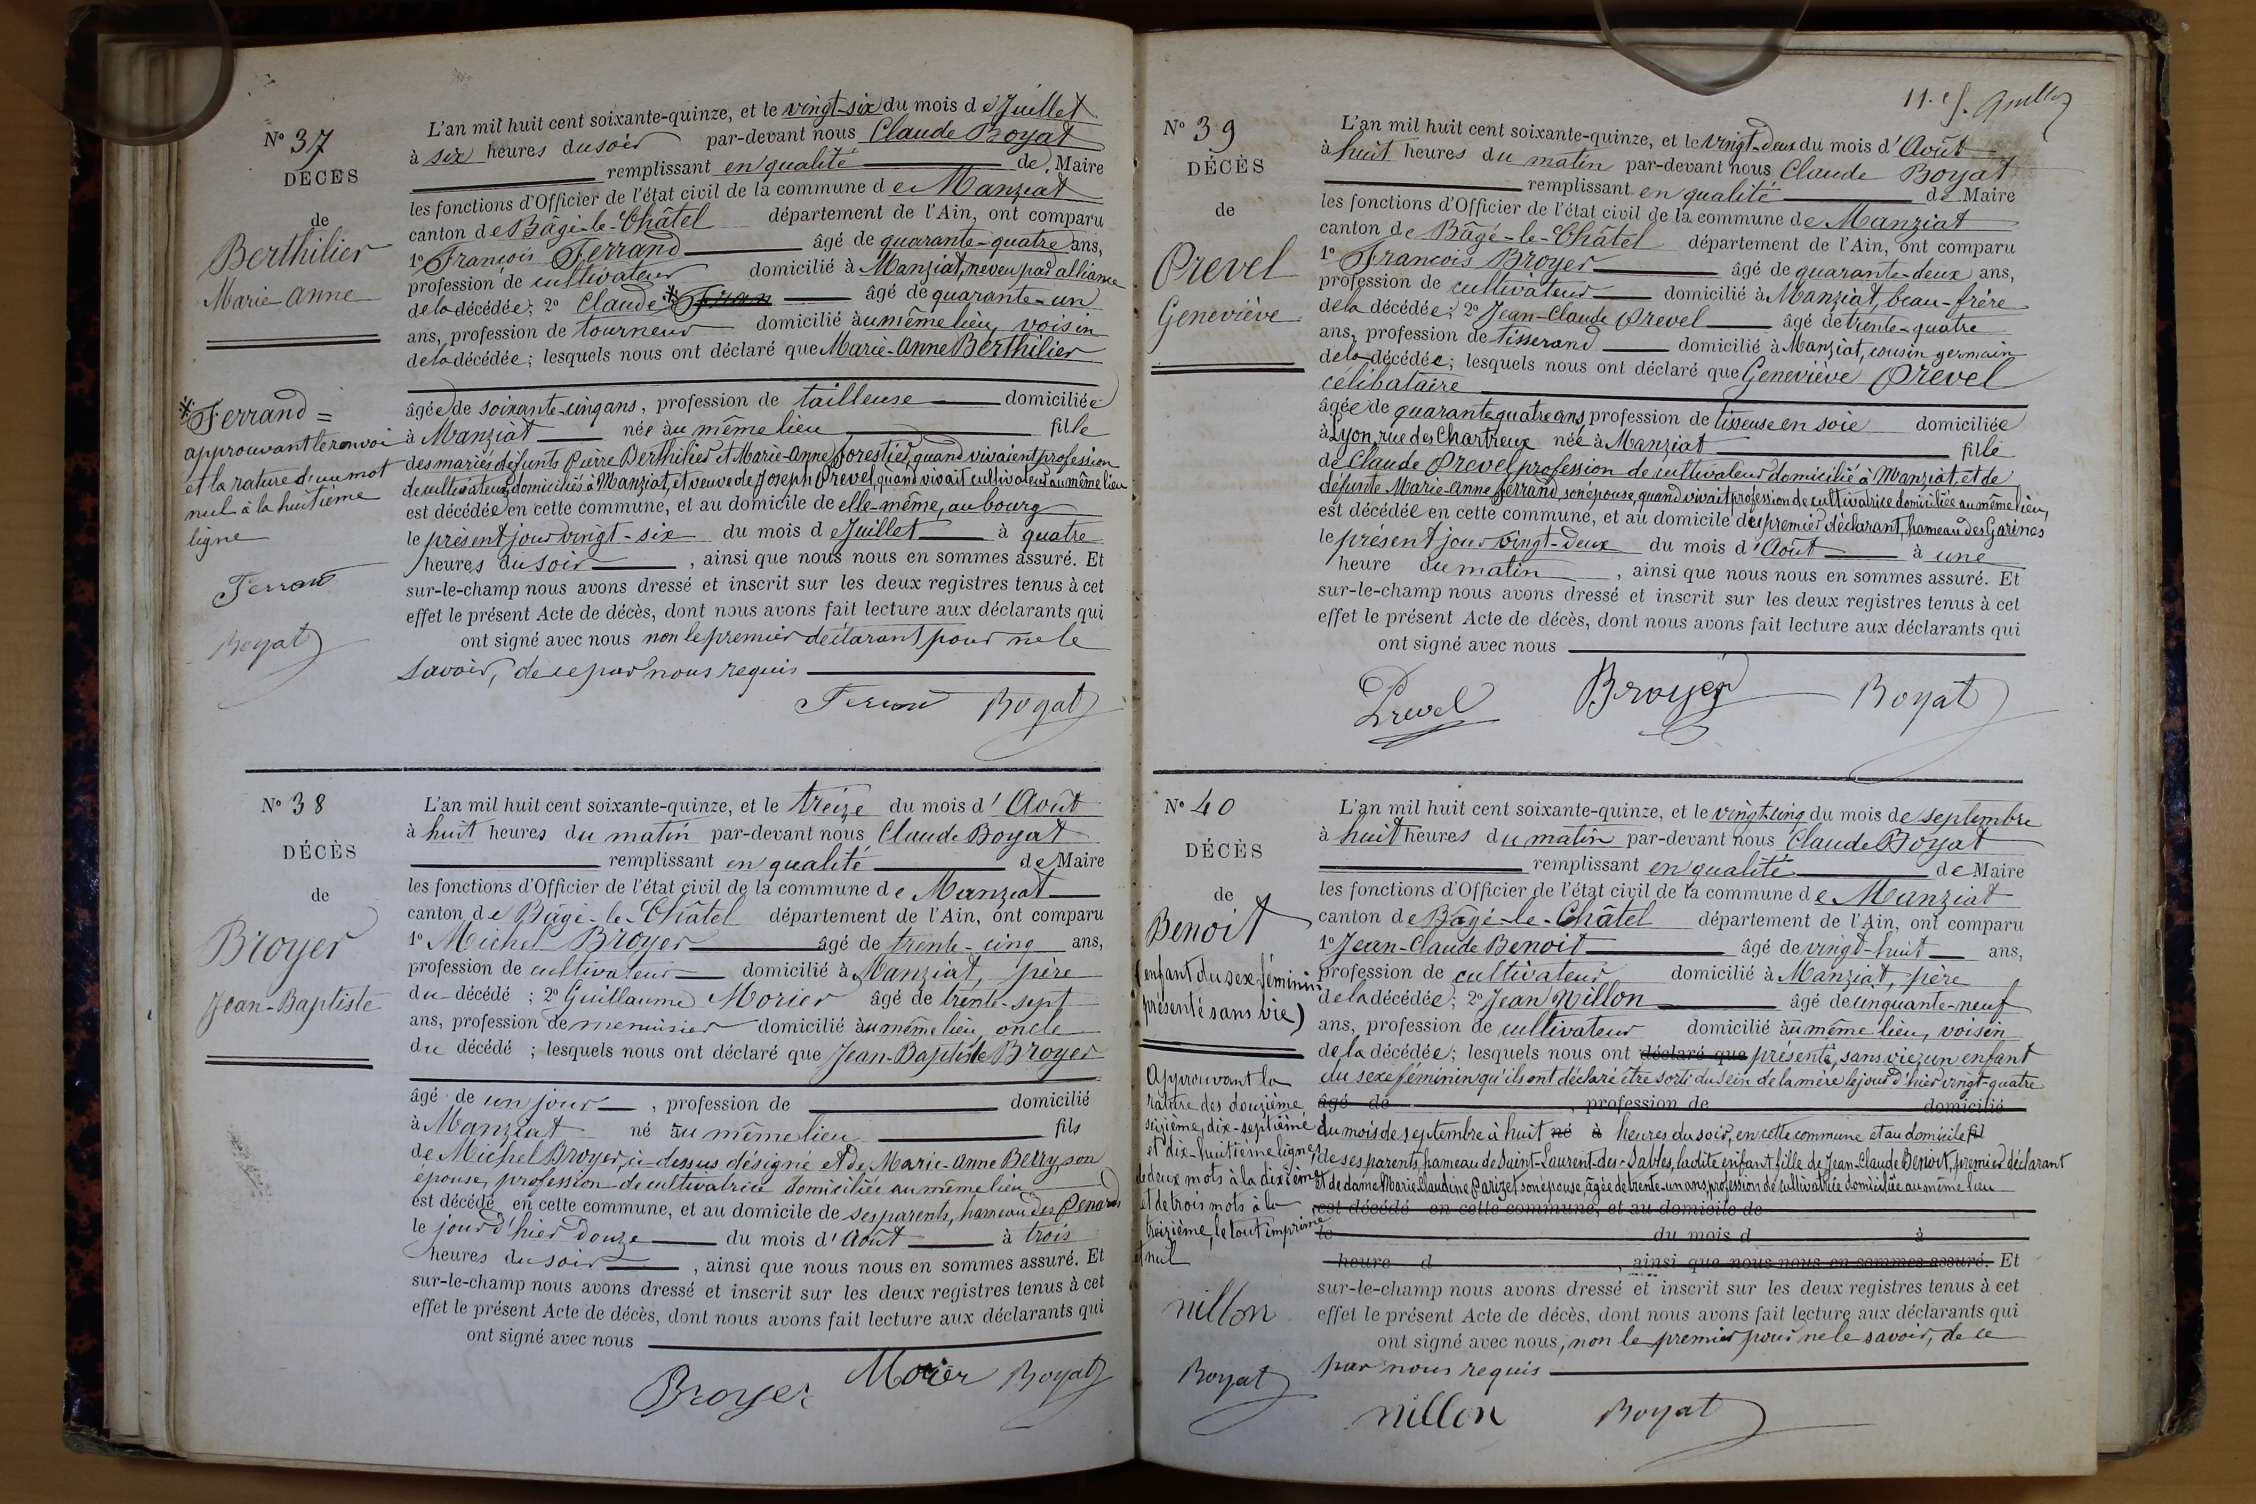 N° 37
DÉCÈS
de
Berthilier
Marie-Anne
*Ferrand =
approuvant le renvoi
et la rature d'un mot
nul à la huitième
ligne
Ferrand
Boyat
L'an mil huit cent soixante-quinze, et le vingt-six du mois de Juillet
à six heures du soir par-devant nous Claude Boyat
remplissant en qualité de Maire
les fonctions d'Officier de l'état civil de la commune de Manziat
canton de Bâgé-le-Châtel département de l'Ain, ont comparu
1° François Ferrand âgé de quarante-quatre ans,
profession de cultivateur domicilié à Manziat, neveu par alliance
de la décédée; 2° Claude * âgé de quarante-un
ans, profession de tourneur domicilié au même lieu, voisin
de la décédée; lesquels nous ont déclaré que Marie-Anne Berthilier
âgée de soixante-cinq ans, profession de tailleuse domiciliée
à Manziat née au même lieu fille
des mariés défunts Pierre Berthilier et Marie-Anne Forestier, quand vivaient profession
de cultivateurs domiciliés à Manziat, et veuve de Joseph Prevel, quand vivait cultivateur au même lieu
est décédée en cette commune, et au domicile de elle-même, au bourg
le présent jour vingt-six du mois de Juillet à quatre
heures du soir, ainsi que nous nous en sommes assuré. Et
sur-le-champ nous avons dressé et inscrit sur les deux registres tenus à cet
effet le présent Acte de décès, dont nous avons fait lecture aux déclarants qui
ont signé avec nous non le premier déclarant pour ne le
savoir, de ce par nous requis
Ferrand Boyat
N° 38
DÉCÈS
de
Broyer
Jean-Baptiste
L'an mil huit cent soixante-quinze, et le treize du mois d'Août
à huit heures du matin par-devant nous Claude Boyat
remplissant en qualité de Maire
les fonctions d'Officier de l'état civil de la commune de Manziat
canton de Bâgé-le-Châtel département de l'Ain, ont comparu
1° Michel Broyer âgé de trente-cinq ans,
profession de cultivateur domicilié à Manziat, père
du décédé; 2° Guillaume Morier âgé de trente-sept
ans, profession de menuisier domicilié au même lieu, oncle
du décédé; lesquels nous ont déclaré que Jean-Baptiste Broyer
âgé de un jour, profession de domicilié
à Manziat né au même lieu fils
de Michel Broyer, ci-dessus désigné et de Marie-Anne Berry, son
épouse, profession de cultivatrice domiciliée au même lieu
est décédé en cette commune, et au domicile de ses parents, hameau des Penards
le jour d'hier douze du mois d'Août à trois
heures du soir, ainsi que nous nous en sommes assuré. Et
sur-le-champ nous avons dressé et inscrit sur les deux registres tenus à cet
effet le présent Acte de décès, dont nous avons fait lecture aux déclarants qui
ont signé avec nous
Broyer Morier Boyat
11. 
N° 39
DÉCÈS
de
Prevel
Geneviève
L'an mil huit cent soixante-quinze, et le vingt-deux du mois d'Août
à huit heures du matin par-devant nous Claude Boyat
remplissant en qualité de Maire
les fonctions d'Officier de l'état civil de la commune de Manziat
canton de Bâgé-le-Châtel département de l'Ain, ont comparu
1° François Broyer âgé de quarante-deux ans,
profession de cultivateur domicilié à Manziat, beau-frère
de la décédée; 2° Jean-Claude Prevel âgé de trente-quatre
ans, profession de tisserand domicilié à Manziat, cousin germain
de la décédée; lesquels nous ont déclaré que Geneviève Prevel
célibataire
âgée de quarante quatre ans, profession de tisseuse en soie domiciliée
à Lyon, rue des Chartreux née à Manziat fille
de Claude Prevel, profession de cultivateur domicilié à Manziat et de
défunte Marie-Anne Ferrand, son épouse, quand vivait profession de cultivatrice domiciliée au même lieu,
est décédée en cette commune, et au domicile du premier déclarant, hameau des Garines
le présent jour vingt-deux du mois d'Août à une
heure du matin, ainsi que nous nous en sommes assuré. Et
sur-le-champ nous avons dressé et inscrit sur les deux registres tenus à cet
effet le présent Acte de décès, dont nous avons fait lecture aux déclarants qui
ont signé avec nous
Prevel Broyer Boyat
N° 40
DÉCÈS
de
Benoit
(enfant du sexe féminin
présenté sans vie)
Approuvant la
rature des douzième,
seizième, dix-septième
et dix-huitième lignes,
de deux mots à la dixième
et de trois mots à la
treizième, le tout imprimé
et nul
Nillon
Boyat
L'an mil huit cent soixante-quinze, et le vingt-cinq du mois de septembre
à huit heures du matin par-devant nous Claude Boyat
remplissant en qualité de Maire
les fonctions d'Officier de l'état civil de la commune de Manziat
canton de Bâgé-le-Châtel département de l'Ain, ont comparu
1° Jean-Claude Benoit âgé de vingt-huit ans,
profession de cultivateur domicilié à Manziat, père
de la décédée; 2° Jean Nillon âgé de cinquante-neuf
ans, profession de cultivateur domicilié au même lieu, voisin
de la décédée; lesquels nous ont déclaré que présenté, sans vie, un enfant
du sexe féminin qu'ils ont déclaré être sorti du sein de la mère le jour d'hier vingt-quatre
âgé de , profession de domicilié
du mois de septembre à huit né à heures du soir, en cette commune et au domicile fil
de ses parents, hameau de Saint-Laurent-des-Sables, ladite enfant fille de Jean-Claude Benoit, premier déclarant
et de dame Marie-Claudine Parizet son épouse, âgée de trente-un ans, profession de cultivatrice domiciliée au même lieu
est décédé en cette commune, et au domicile de
le du mois d à
heure d , ainsi que nous nous en sommes assuré. Et
sur-le-champ nous avons dressé et inscrit sur les deux registres tenus à cet
effet le présent Acte de décès, dont nous avons fait lecture aux déclarants qui
ont signé avec nous, non le premier pour ne le savoir, de ce
par nous requis
Nillon Boyat